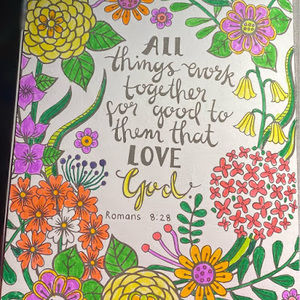 ALL
things work
together
for good to
them that
LOVE
God
Romans 8:28